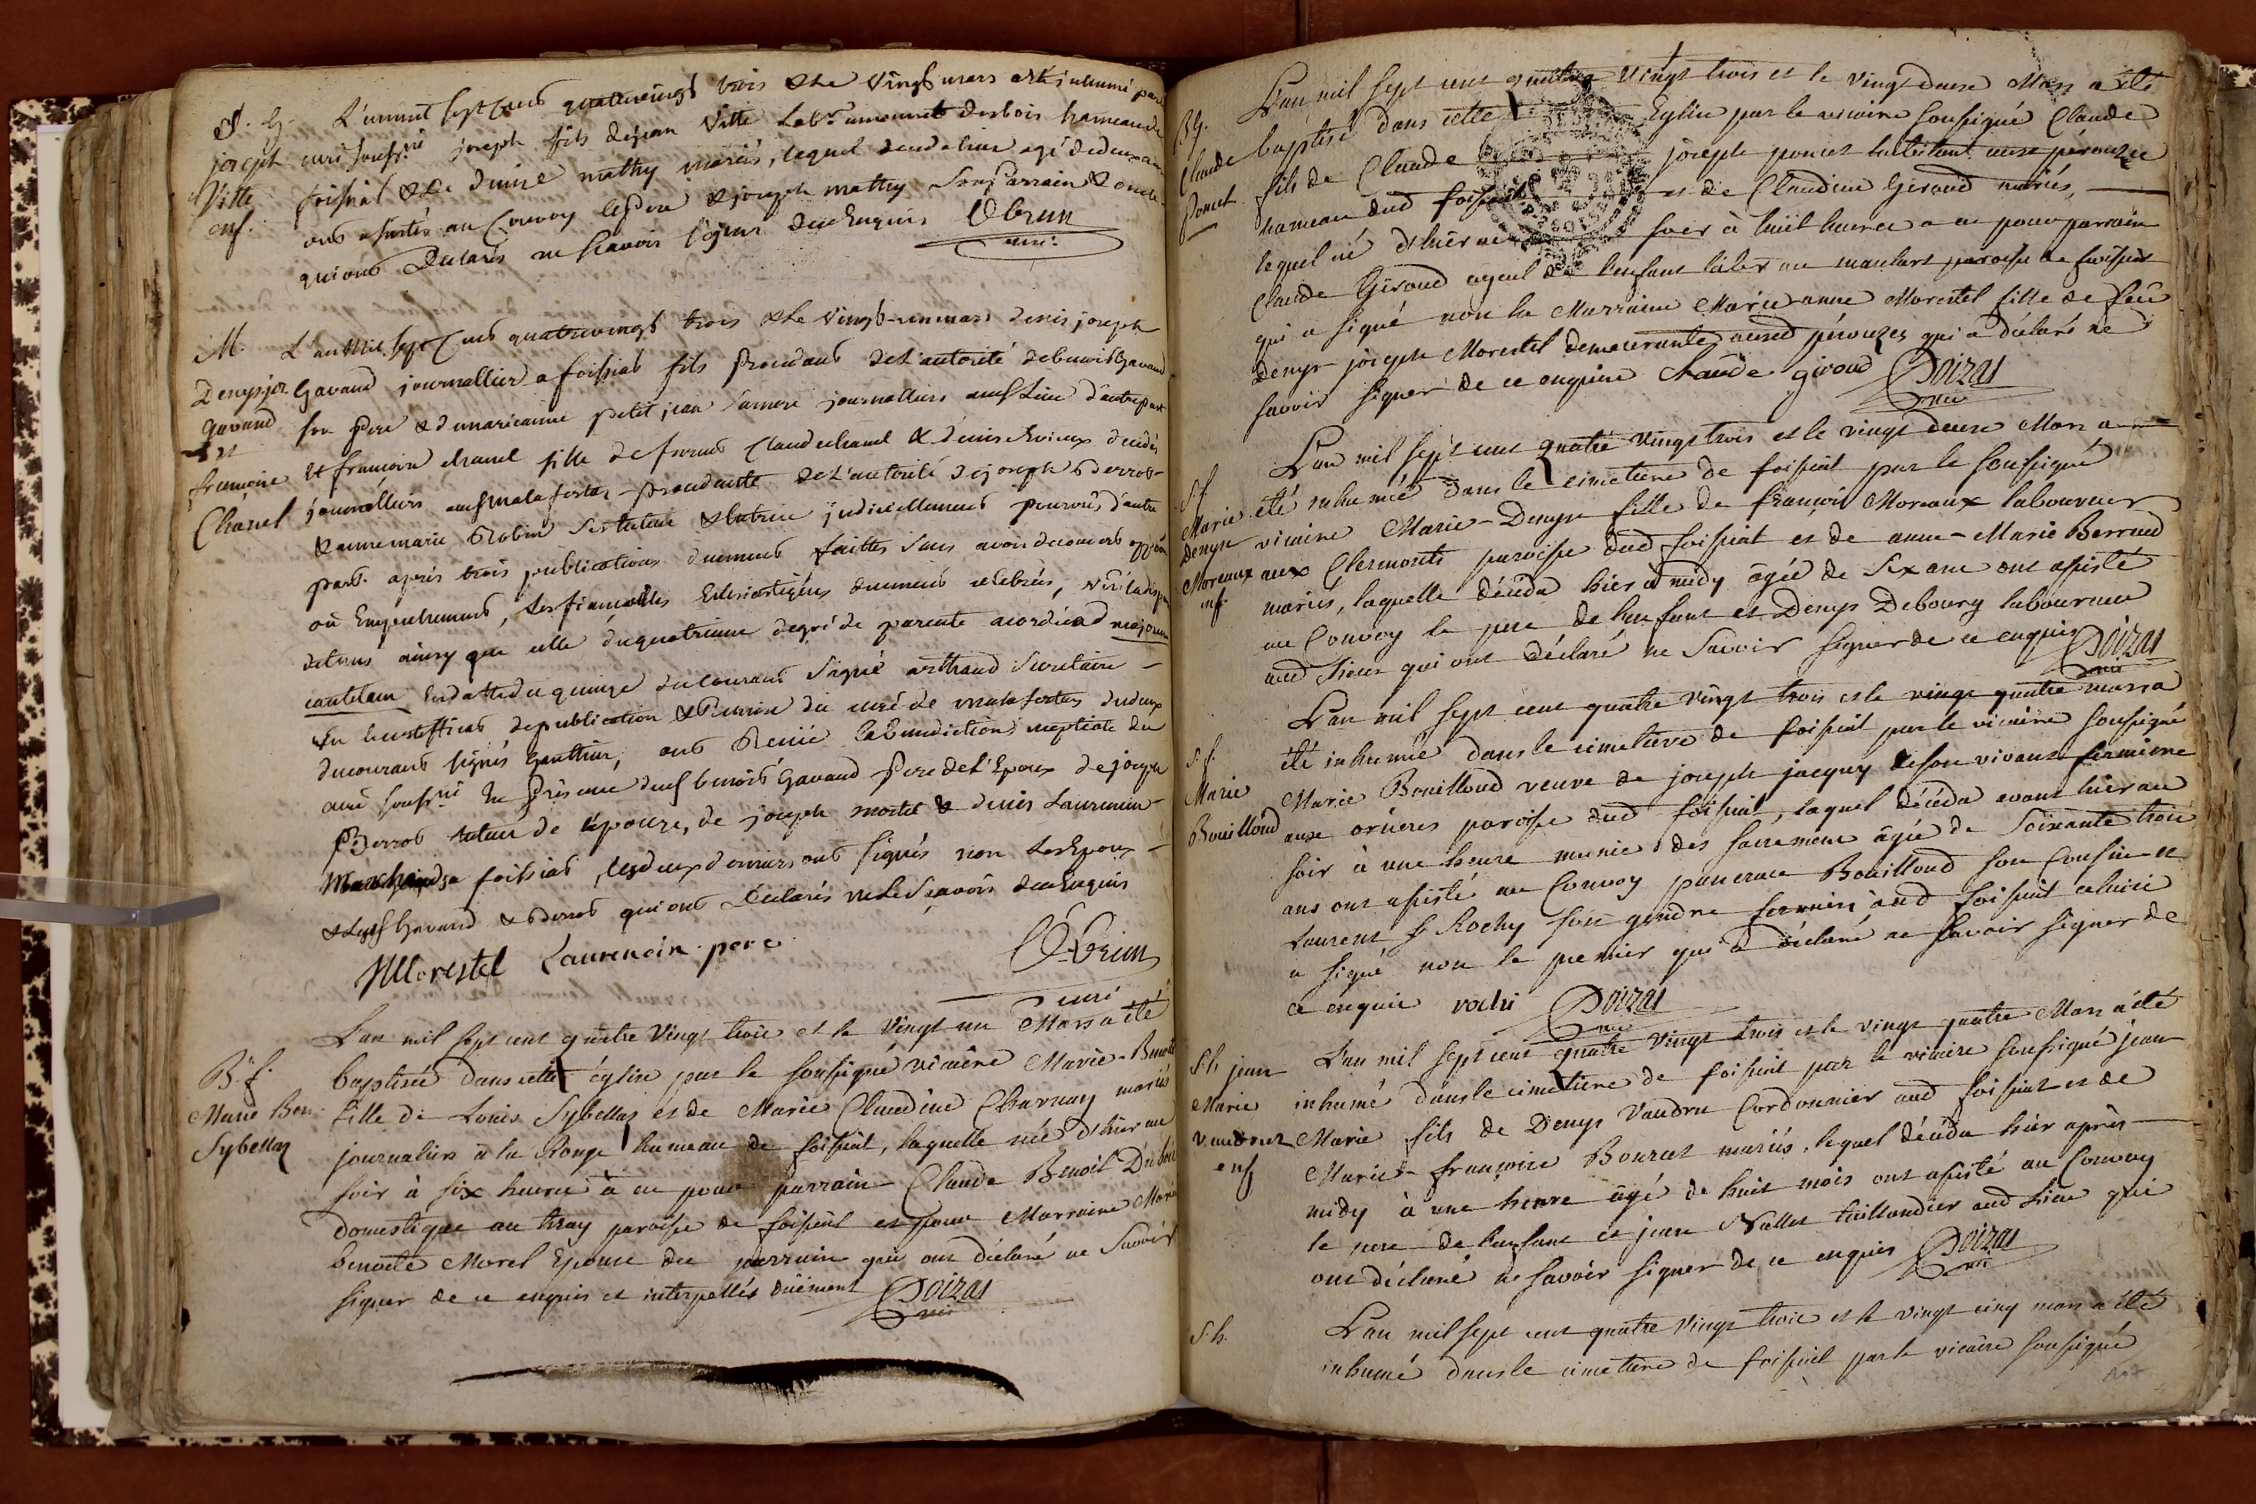 S. g. L'an mil sept cens quatrevingt trois & le vingt mars a été inhumé par
joseph curé souss.né joseph fils de jean Vitte Lab.r au mont desbois hameau de
Vitte foissiat & de denise mathy mariés, lequel
enf. ont assistés au Convoy le Pere & joseph mathy son Parrain & oncle
qui ont Déclarés ne sçavoir signer de ce Enquis
curé
M. L'an Mil sept Cens quatrevingt trois & le vingt-un mars denis joseph
Denys jos. Gavand journallier a foissiat fils Procédant de L'autorité de benoit Gavand
Gavand son Pere & de marieanne petit jean sa mere journalliers aus. Lieu d'autre part
et
francoise Et francoise chanel fille de furent Claude chanel & denise décédés
Chanel journalliers aus. malafretaz procédante de L'autorité de joseph Perrot
& anne marie Robin ses tuteur & tutrice judiciellement pourvus d'autre
part. après trois publications duement faittes sans avoir découvert
où Empechement, Les fiançailles Ecclésiastiques duement célébrés, vu la
de tems ainsy que celle du quatrieme degré de parenté accordée ad majorem
cautelam En datte du quinze du courant Signé arthaud Secretaire
vu le certifficat de publication & Remise du curé de malafretaz du deux
du courant signés Gauthier, ont Reçue la bénédiction nuptiale du
curé souss.né En Présence dus. benoit Gavand Pere de L'Epoux de joseph
Perrot tuteur de l'épouze, de joseph & denis Laurencin
Marchands a foissiat, Les deux derniers ont signés non les Epoux
& Lesd. Gavand & Perrot qui ont Déclarés ne Le Sçavoir de ce Enquis
Morestel Laurencin pere
curé
L'an mil sept cent quatre vingt trois et le vingt un Mars a été
B. f. baptisée dans cette église par le soussigné vicaire Marie-Benoite
Marie Ben. fille de Louis Sybellas et de Marie Claudine Charnay mariés
Sybellas journaliers à la Ronge hameau de foissiat, laquelle née d'hier au
soir à six heures à eu pour parrain Claude Benoit
domestique au tray paroisse de foissiat et pour Marraine Marie
benoite Morel Epouse du parrain qui ont déclaré ne Savoir
signer de ce enquis et interpellés duëment Doizas
vic
L'an mil sept cent quatre vingt trois et le vingt deux Mars a été
B. g. baptisé dans cette Eglise par le vicaire soussigné Claude
Claude fils de Claude joseph poncet habitant aux pérouzes
Poncet hameau dud foissiat et de Claudine Giroud mariés,
lequel né d'hier au soir à huit heures a eu pour parrain
Claude Giroud ayeul de l'enfant lab.r au paroisse de foissiat
qui a signé non la Marraine Marie anne Morestel fille de feû
denys-joseph Morestel demeurante aused pérouzes qui a déclaré ne
savoir signer de ce enquise Claude giroud Doizas
vic
L'an mil sept cent quatre vingt trois et le vingt deux Mars a
S. f. été inhumée dans le cimetiere de foissiat par le soussigné
Marie
Denyse vicaire Marie-Denyse fille de francois Moreaux laboureur
Moreaux aux Clermonts paroisse dud foissiat et de anne-Marie Berraud
enf. mariés, laquelle décéda hier a midy âgée de Six ans ont assisté
au Convoy le pere de l'enfant et Denys Debourg laboureur
aud Lieux qui ont déclaré ne Savoir signer de ce enquis Doizas
vic
L'an mil sept cent quatre vingt trois et le vingt quatre mars a
S. f. été inhumée dans le cimetiere de foissiat par le vicaire soussigné
Marie Marie Bouilloud veuve de joseph jacquy de son vivant fermiere
Bouilloud aux orûeres paroisse dud foissiat, laquel décéda avant hier au
soir à une heure munie des sacrements âgée de Soixante trois
ans ont assisté au Convoy pancrace Bouilloud son Cousin et
Laurent Rochy son gendre fermiers aud foissiat celuici
a signé non le premier qui a déclaré ne Savoir signer de
ce enquis rochi Doizas
vic
S. h jean L'an mil sept cent quatre vingt trois et le vingt quatre Mars a été
Marie inhumé dans le cimetiere de foissiat par le vicaire soussigné jean-
Vaudrus Marie fils de Denys Vaudru Cordonnier aud foissiat et de
enf Marie-françoise Bourcet mariés, lequel décéda hier après
midy à une heure âgé de huit mois ont assisté au Convoy
le pere de l'enfant et jean Nallet taillandier aud Lieu qui
ont déclaré ne savoir signer de ce enquis Doizas
vic
S. h. L'an mil sept cent quatre vingt trois et le vingt cinq mars a été
inhumé dans le cimetiere de foissiat par le vicaire soussigné